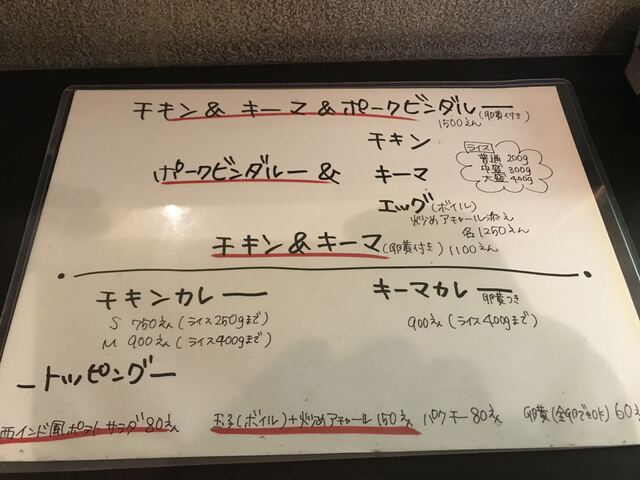 チキン & キーマ & ポークビンダルー (卵黄付き)
1500えん
チキン
ポークビンダルー & キーマ
エッグ(ボイル)
炒めアチャール添え
各1250えん
ライス
普通 200g
中盛 300g
大盛 400g
チキン & キーマ (卵黄付き) 1100えん
チキンカレー
S 750えん (ライス250gまで)
M 900えん (ライス400gまで)
キーマカレー 卵黄つき
900えん (ライス400gまで)
ートッピングー
西インド風ポテトサラダ 80えん 玉子(ボイル)+炒めアチャール 150えん パクチー 80えん 卵黄 60